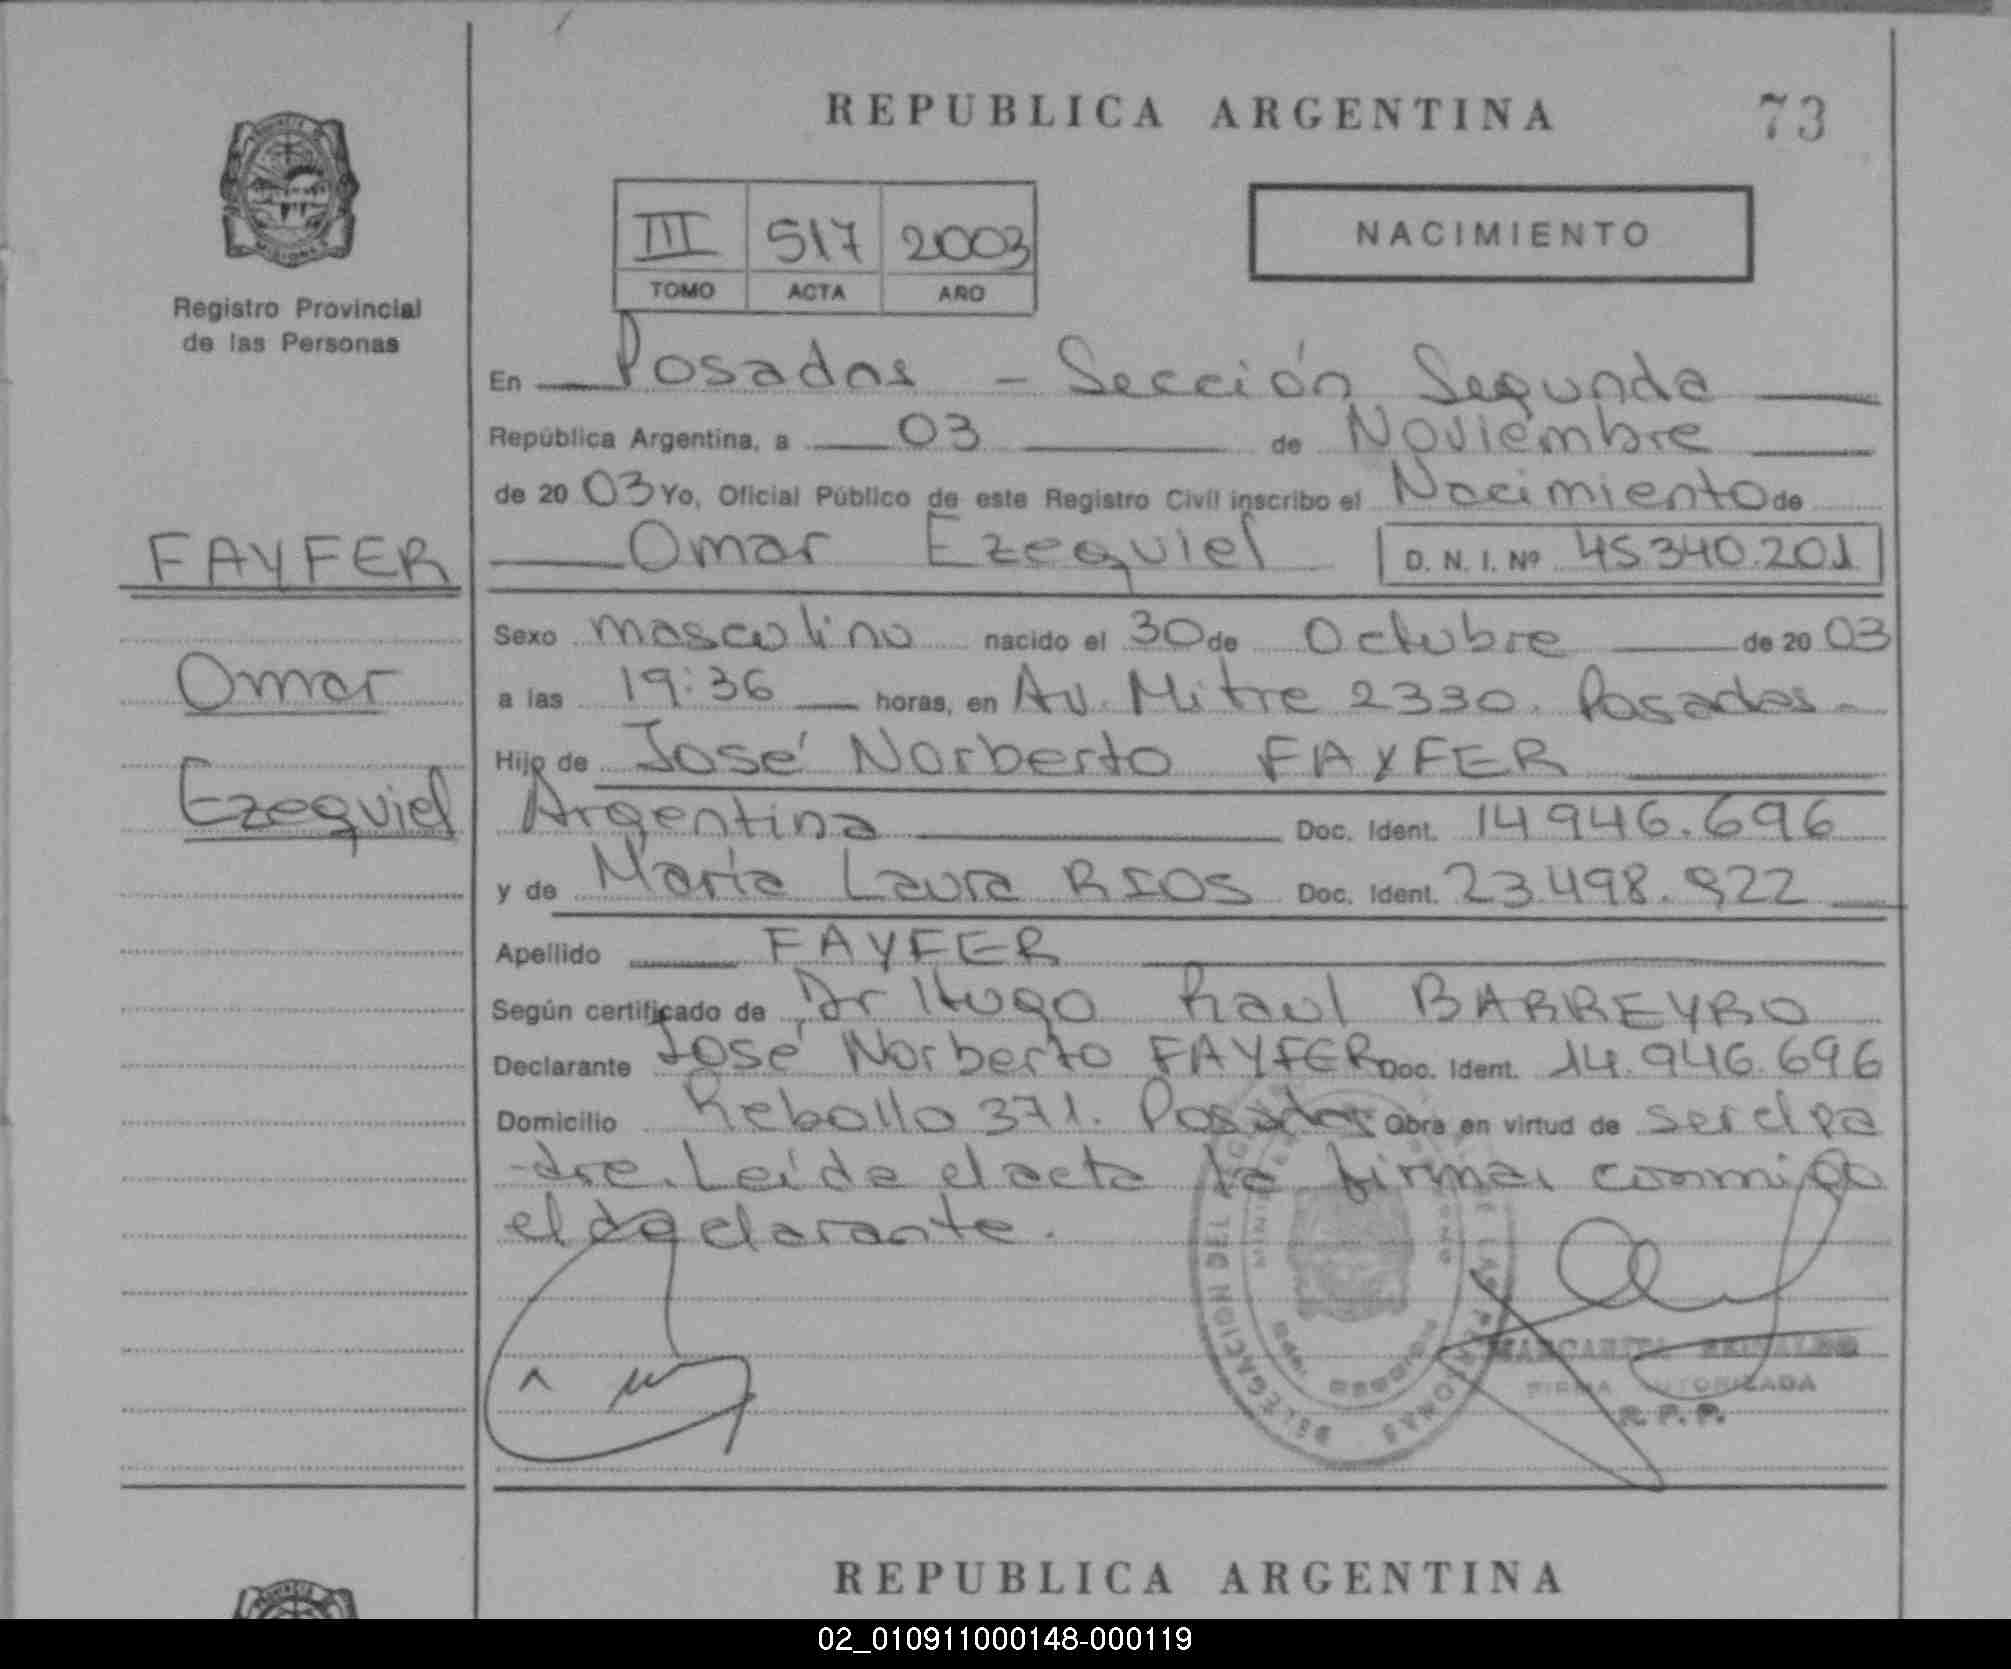 REPUBLICA ARGENTINA
73
III 517 2003
TOMO ACTA AÑO
NACIMIENTO
Registro Provincial
de las Personas
En Posadas - Sección Segunda
República Argentina, a 03 de Noviembre
de 20 03 Yo, Oficial Público de este Registro Civil inscribo el Nacimiento de
Omar Ezequiel D. N. I. Nº 45340.201
FAYFER
Omar
Ezequiel
Sexo masculino nacido el 30 de Octubre de 20 03
a las 19:36 horas, en Av. Mitre 2330. Posadas.
Hijo de José Norberto FAYFER
Argentina Doc. Ident. 14946.696
y de María Laura RIOS Doc. Ident. 23.498.922
Apellido FAYFER
Según certificado de Dr Hugo Raul BARREYRO
Declarante José Norberto FAYFER Doc. Ident. 14.946.696
Domicilio Rebollo 371. Posadas Obra en virtud de ser el pa
-dre. Leída el acta la firma conmigo
el declarante.
DELEGACION DEL DE LAS PERSONAS
MARGARITA
FIRMA AUTORIZADA
R. P. P.
REPUBLICA ARGENTINA
02_010911000148-000119